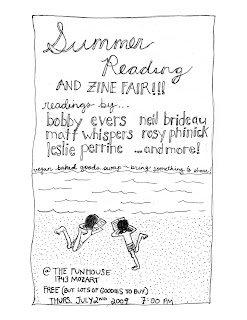 Summer
Reading
AND ZINE FAIR!!!
readings by...
bobby evers neil brideau
matt whispers rosy phinick
leslie perrine ...and more!
vegan baked goods swap ~ bring something to share!
@ THE FUNHOUSE
1743 MOZART
FREE (BUT LOTS OF GOODIES TO BUY)
THURS. JULY 2nd 2009 7:00 PM